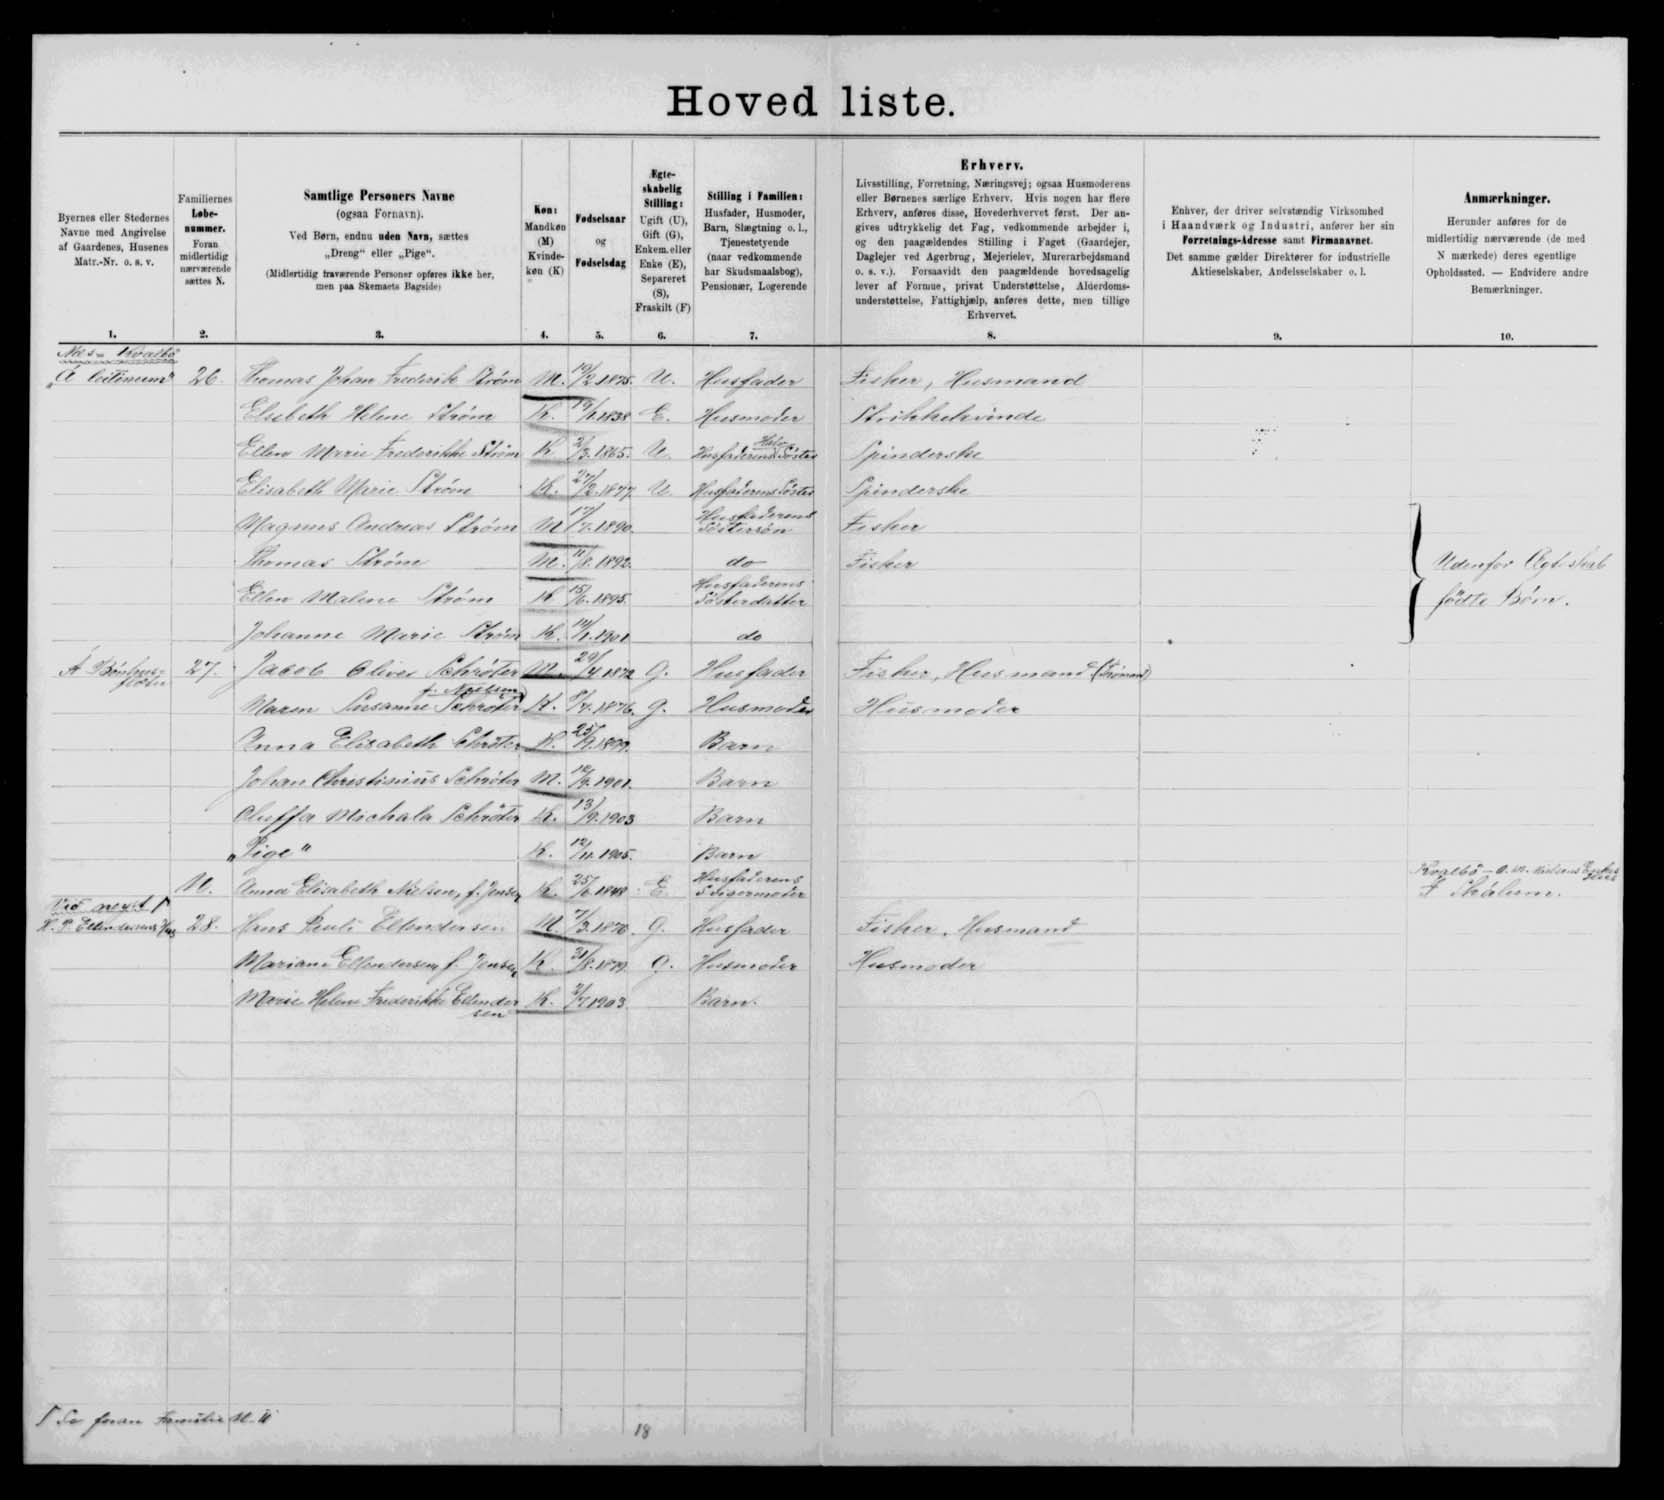 Hoved liste.
Byernes eller Stedernes
Navne med Angivelse
af Gaardenes, Husenes
Matr.-Nr. o. s. v.
Familiernes
Løbe-
nummer.
Foran
midlertidig
nærværende
sættes N.
Samtlige Personers Navne
(ogsaa Fornavn).
Ved Børn, endnu uden Navn, sættes
„Dreng“ eller „Pige“.
(Midlertidig fraværende Personer opføres ikke her,
men paa Skemaets Bagside)
Køn:
Mandkøn
(M)
Kvinde-
køn (K)
Fødselsaar
og
Fødselsdag
Ægte-
skabelig
Stilling:
Ugift (U),
Gift (G),
Enkem. eller
Enke (E),
Separeret
(S),
Fraskilt (F)
Stilling i Familien:
Husfader, Husmoder,
Barn, Slægtning o. l.,
Tjenestetyende
(naar vedkommende
har Skudsmaalsbog),
Pensionær, Logerende
Erhverv.
Livsstilling, Forretning, Næringsvej; ogsaa Husmoderens
eller Børnenes særlige Erhverv. Hvis nogen har flere
Erhverv, anføres disse, Hovederhvervet først. Der an-
gives udtrykkelig det Fag, vedkommende arbejder i,
og den paagældendes Stilling i Faget (Gaardejer,
Daglejer ved Agerbrug, Mejerielev, Murerarbejdsmand
o. s. v.). Forsaavidt den paagældende hovedsagelig
lever af Formue, privat Understøttelse, Alderdoms-
understøttelse, Fattighjælp, anføres dette, men tillige
Erhvervet.
Enhver, der driver selvstændig Virksomhed
i Haandværk og Industri, anfører her sin
Forretnings-Adresse samt Firmanavnet.
Det samme gælder Direktører for industrielle
Aktieselskaber, Andelsselskaber o. l.
Anmærkninger.
Herunder anføres for de
midlertidig nærværende (de med
N mærkede) deres egentlige
Opholdssted. — Endvidere andre
Bemærkninger.
1. 2. 3. 4. 5. 6. 7. 8. 9. 10.
Nes - Kvalbö
26. Thomas Johan Frederik Strøm M. 1875. U. Husfader Fisker, Husmand
Elsebeth Helene Strøm K. 1838 E. Husmoder Strikkekvinde
Ellen Marie Frederikke Strøm K. 1865. U. Husfaderens Halv Söster Spinderske
Elisabeth Marie Strøm K. 27/2.1877 U. Husfaderens Söster Spinderske
Magnus Andreas Strøm M 17/7.1890. Husfaderens Söstersön Fisker
Thomas Strøm M. 11/8.1892. do Fisker
Ellen Malene Strøm K 15/6.1895. Husfaderens Sösterdatter
Udenfor Ægteskab
födte Børn.
Johanne Marie Strøm K. 14/1.1901 do
27. Jacob Oliver Schröter M. 29/4.1872 G. Husfader Fisker, Husmand
Maren Susanne Schröter f. Nielsen K. 8/7.1876. G. Husmoder Husmoder
Anna Elisabeth Schröter K. 25/9.1899. Barn
Johan Christinius Schröter M. 12/9.1901. Barn
Oluffa Michala Schröter K. 13/9.1903 Barn
„Pige“ K. 12/11.1905. Barn
N. Anna Elisabeth Nielsen, f. Jensen K. 1848 E. Husfaderens Svigermoder
Í Skálum.
28. Hans Pauli Ellendersen M 7/3.1876. G. Husfader Fisker, Husmand
Mariane Ellendersen f. Jensen K. 31/8.1879. G. Husmoder Husmoder
Marie Helene Frederikke Ellendersen K. 2/7.1903 Barn.
Se foran Familie N.
18